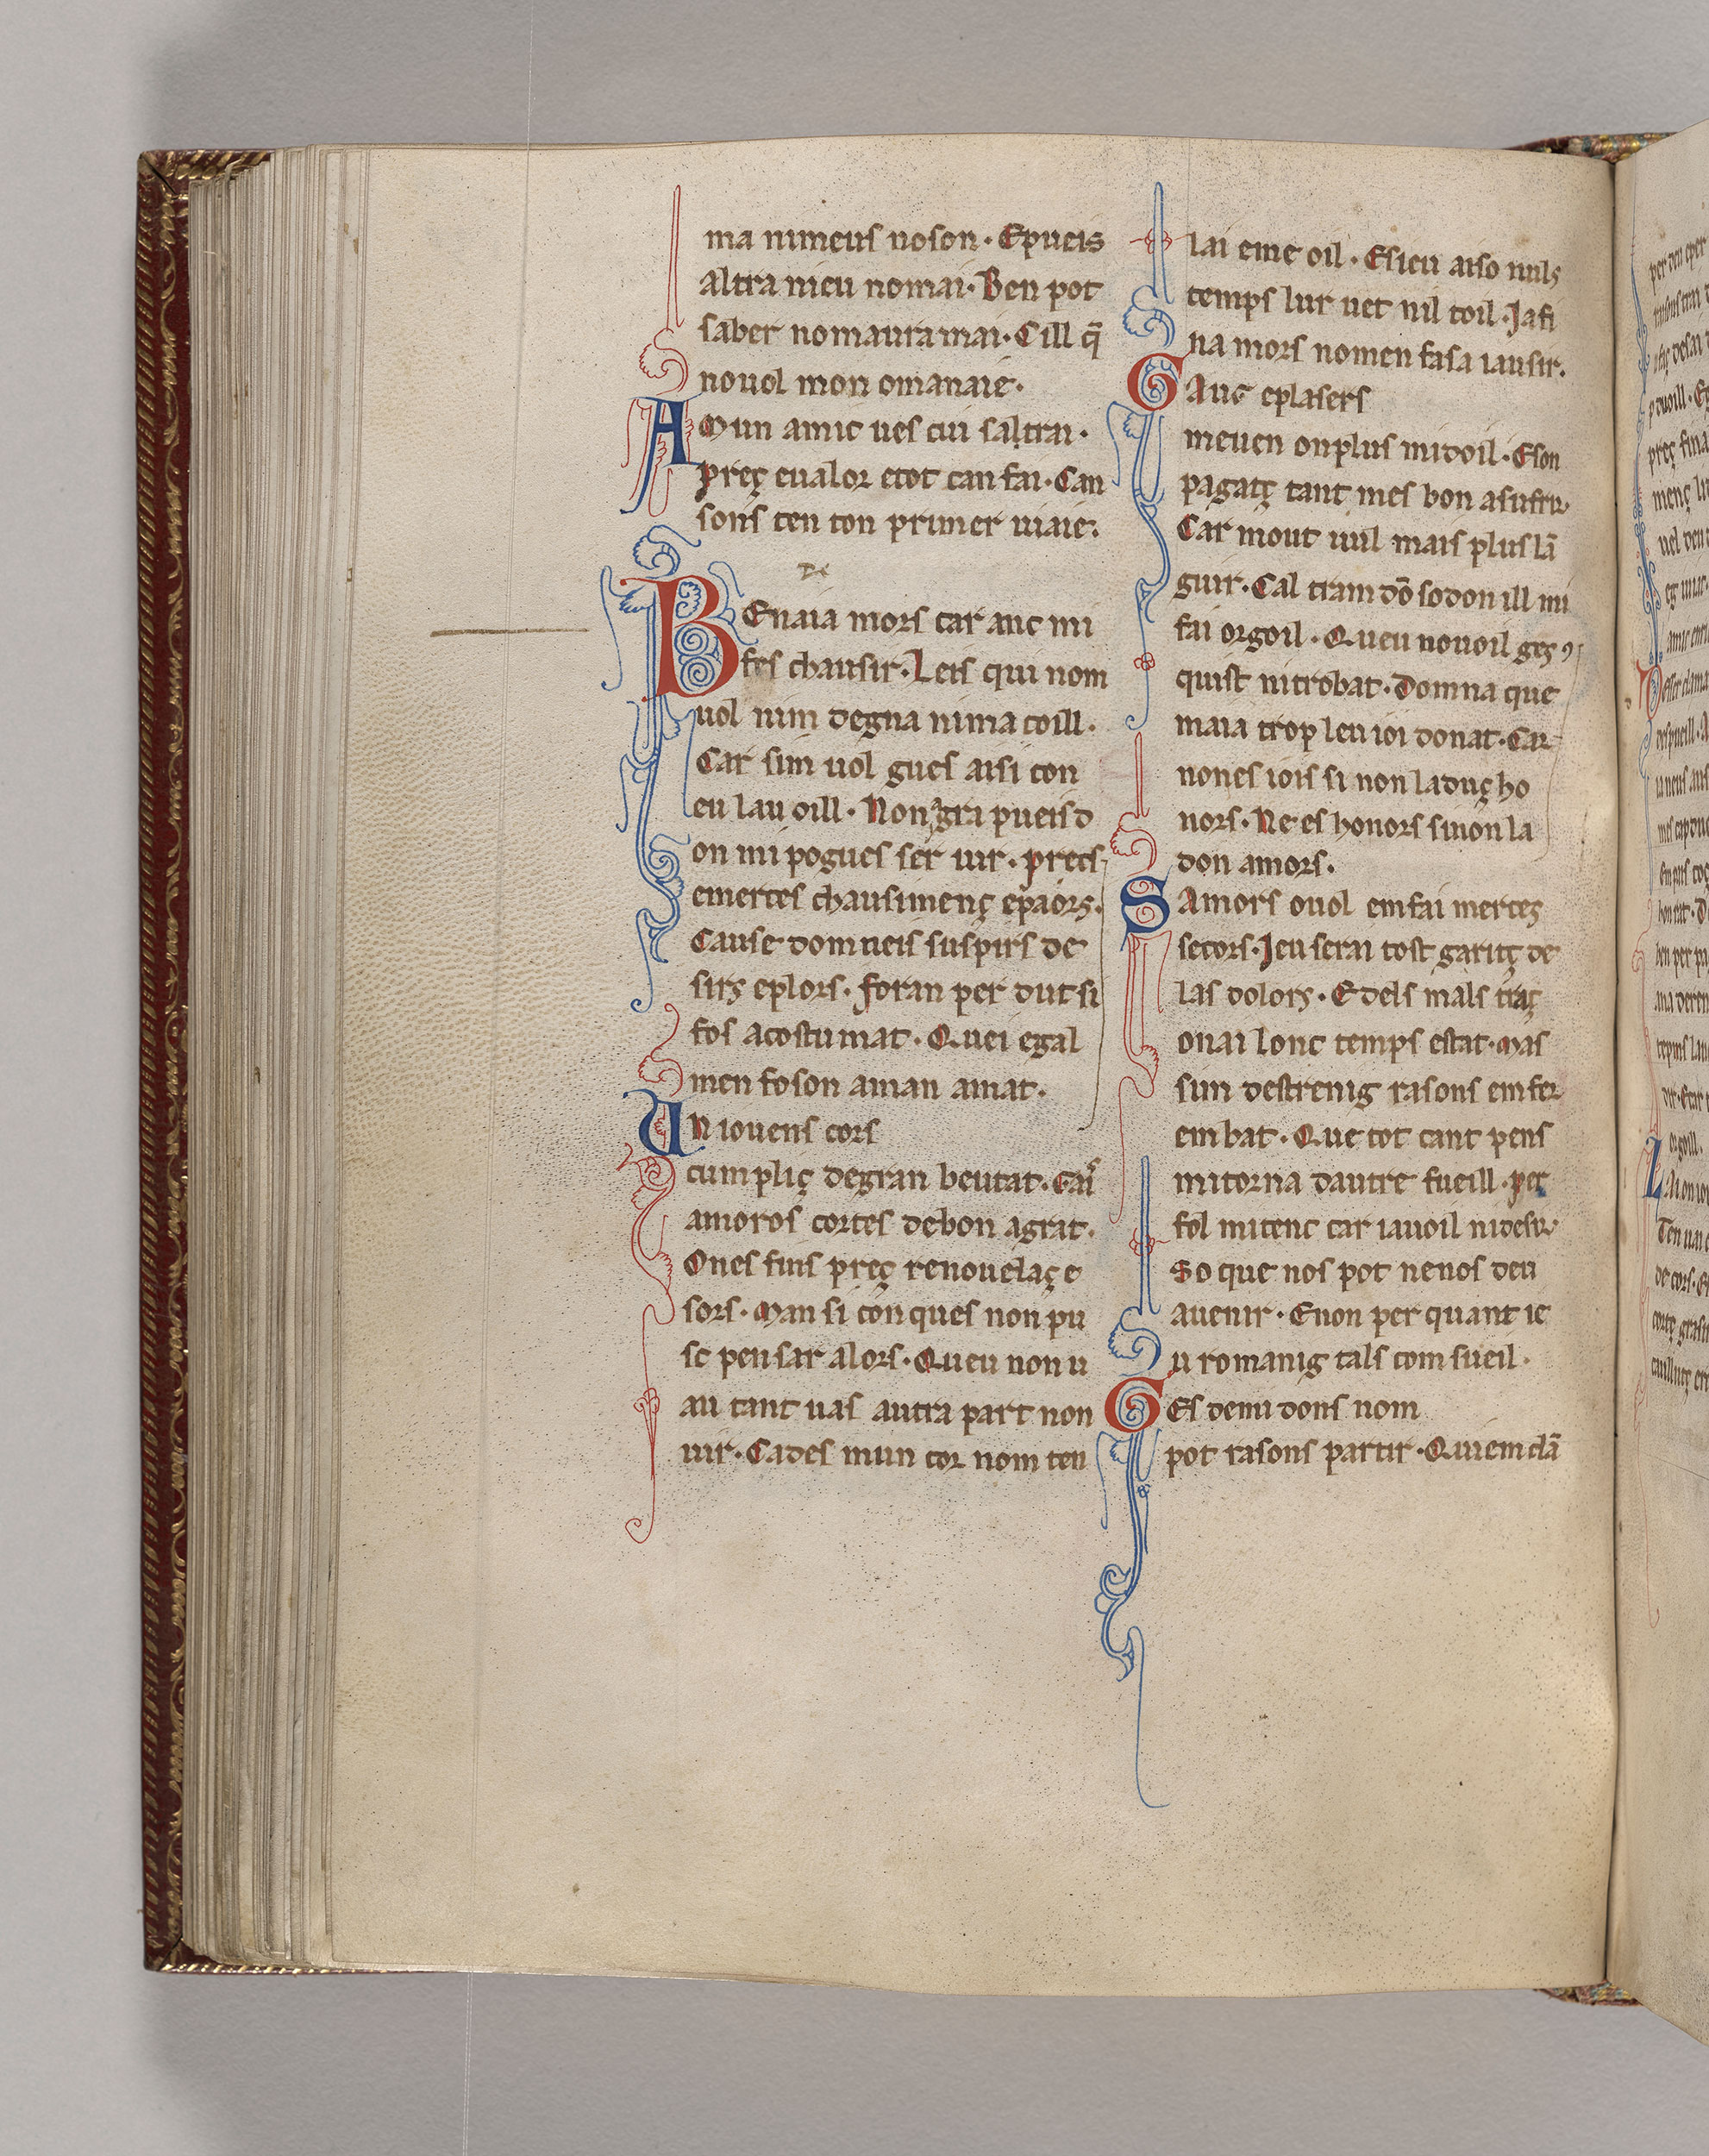 ma nimeus noson · Epueis
altra nieu nomai · Ben pot
saber nomaura mai · Cill q̄
nouol mon omanaie ·
AMun amic ues cui saltrai ·
preç eualor etot can fai · Can
sons ten ton primer uiaie ·
BEnaia mors car anc mi
fes chausir · Leis qui nom
uol nim degna nima coill ·
Car sim uol gues aisi con
eu lau oill · Non gra pueis d
on mi pogues ser uir · precs
emerces chausimenç epaiors ·
Cause domneis suspirs de
sirs eplors · foran per dut si
fos acostumat · Quei egal
men foson aman amat ·
UN iouens cors
cumpliç degran beutat · Gai
amoros cortes debon agrat ·
Ones fins preç renouelaç e
sors · Man si con ques non pu
sc pensar alors · Queu non u
au tant uas autra part non
uir · Cades mun cor nom ten
lai eme oil · Esieu aiso nuls
temps lur uet nil toil · Ja fi
na mors nomen fasa iausir ·
GAug eplasers
meuen onplus midoil · Eson
pagatç tant mes bon asufrir
Car mout uuil mais plus lā
guir · Cal tram dō sodon ill mi
fai orgoil · Queu nouoil ges 9
quist nitrobat · Domna que
maia trop leu ioi donat · Car
nones iois si non laduç ho
nors · Ne es honors sinon la
don amors ·
SAmors ouol emfai merces
secors · Jeu serai tost garitç de
las dolors · E dels mals traç
onai lonc temps estat · Mas
sun destrenig rasons em fer
em bat · Que tot cant pens
mitorna dautre fueill · per
fol mitenc car iauoil nidesir
So que nos pot nenos deu
auenir · Enon per quant ie
u romanig tals com sueil ·
GEs demi dons nom
pot rasons partir · Quiem clā